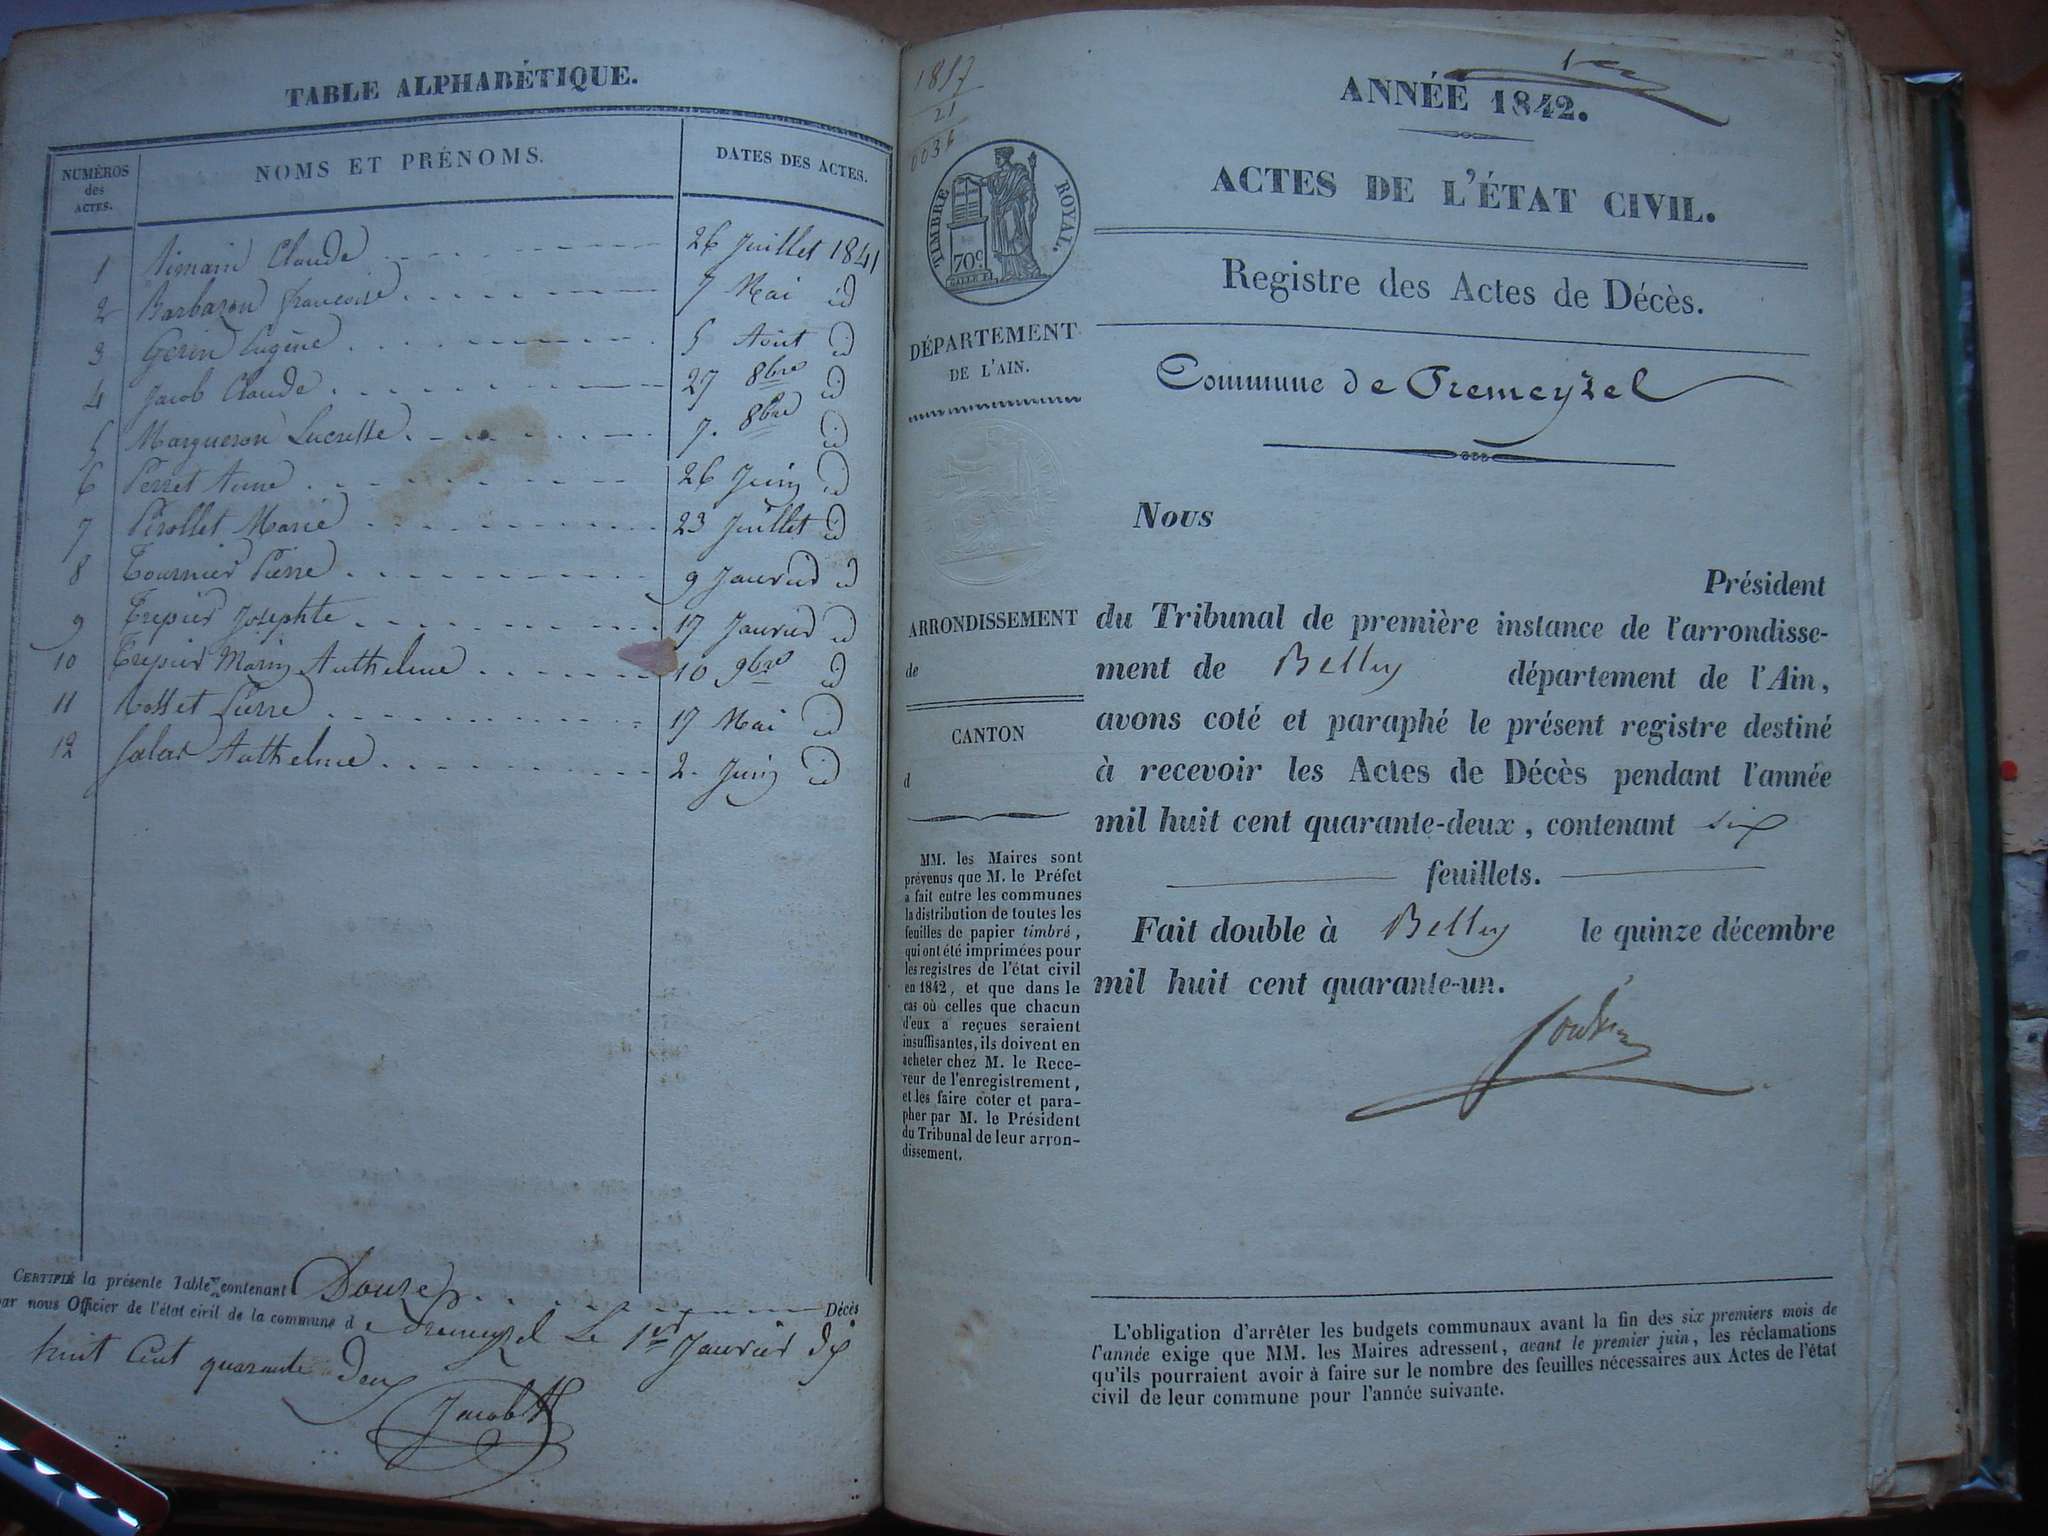 TABLE ALPHABÉTIQUE.
NUMÉROS des ACTES. NOMS ET PRÉNOMS. DATES DES ACTES.
1 Claude 26 Juillet 1841
2 Barbaron francoise 7 Mai id
3 Gerin Eugène 5 Aout id
4 Jacob Claude 27 8bre id
5 Margueron Lucresse 7. 8bre id
6 Perret Anne 26 Juin id
7 Pirollet Marie 23 Juillet id
8 Tournier Pierre 9 Janvier id
9 Trepier Josephte 17 Janvier id
10 Trepier Marin Anthelme 10 9bre id
11 Pierre 17 Mai id
12 Anthelme 2. Juin id
CERTIFIÉ la présente Table contenant Douze Décès
par nous Officier de l'état civil de la commune de Premeyzel Le 1er Janvier dix
huit Cent quarante Deux
Jacob
1817
21
0036
ANNÉE 1842.
ACTES DE L'ÉTAT CIVIL.
TIMBRE ROYAL.
70c
Registre des Actes de Décès.
DÉPARTEMENT
DE L'AIN.
Commune de Premeyzel
Nous
Président
ARRONDISSEMENT
de
CANTON
d
du Tribunal de première instance de l'arrondisse-
ment de Belley département de l'Ain,
avons coté et paraphé le présent registre destiné
à recevoir les Actes de Décès pendant l'année
mil huit cent quarante-deux, contenant six
feuillets.
Fait double à Belley le quinze décembre
mil huit cent quarante-un.
MM. les Maires sont
prévenus que M. le Préfet
a fait entre les communes
la distribution de toutes les
feuilles de papier timbré,
qui ont été imprimées pour
les registres de l'état civil
en 1842, et que dans le
cas où celles que chacun
d'eux a reçues seraient
insuffisantes, ils doivent en
acheter chez M. le Rece-
veur de l'enregistrement,
et les faire coter et para-
pher par M. le Président
du Tribunal de leur arron-
dissement.
L'obligation d'arrêter les budgets communaux avant la fin des six premiers mois de
l'année exige que MM. les Maires adressent, avant le premier juin, les réclamations
qu'ils pourraient avoir à faire sur le nombre des feuilles nécessaires aux Actes de l'état
civil de leur commune pour l'année suivante.